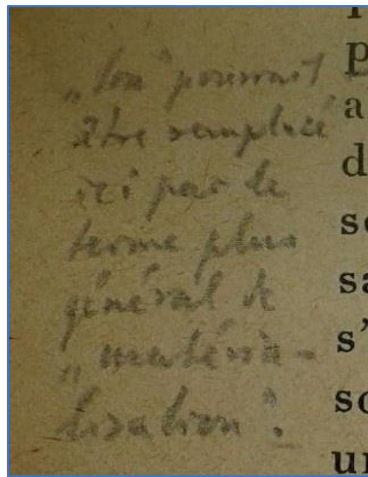 „ton" pourrait
être remplacé
ici par le
terme plus
général de
„matéria-
lisation".
p
a
d
se
sa
s'
so
un